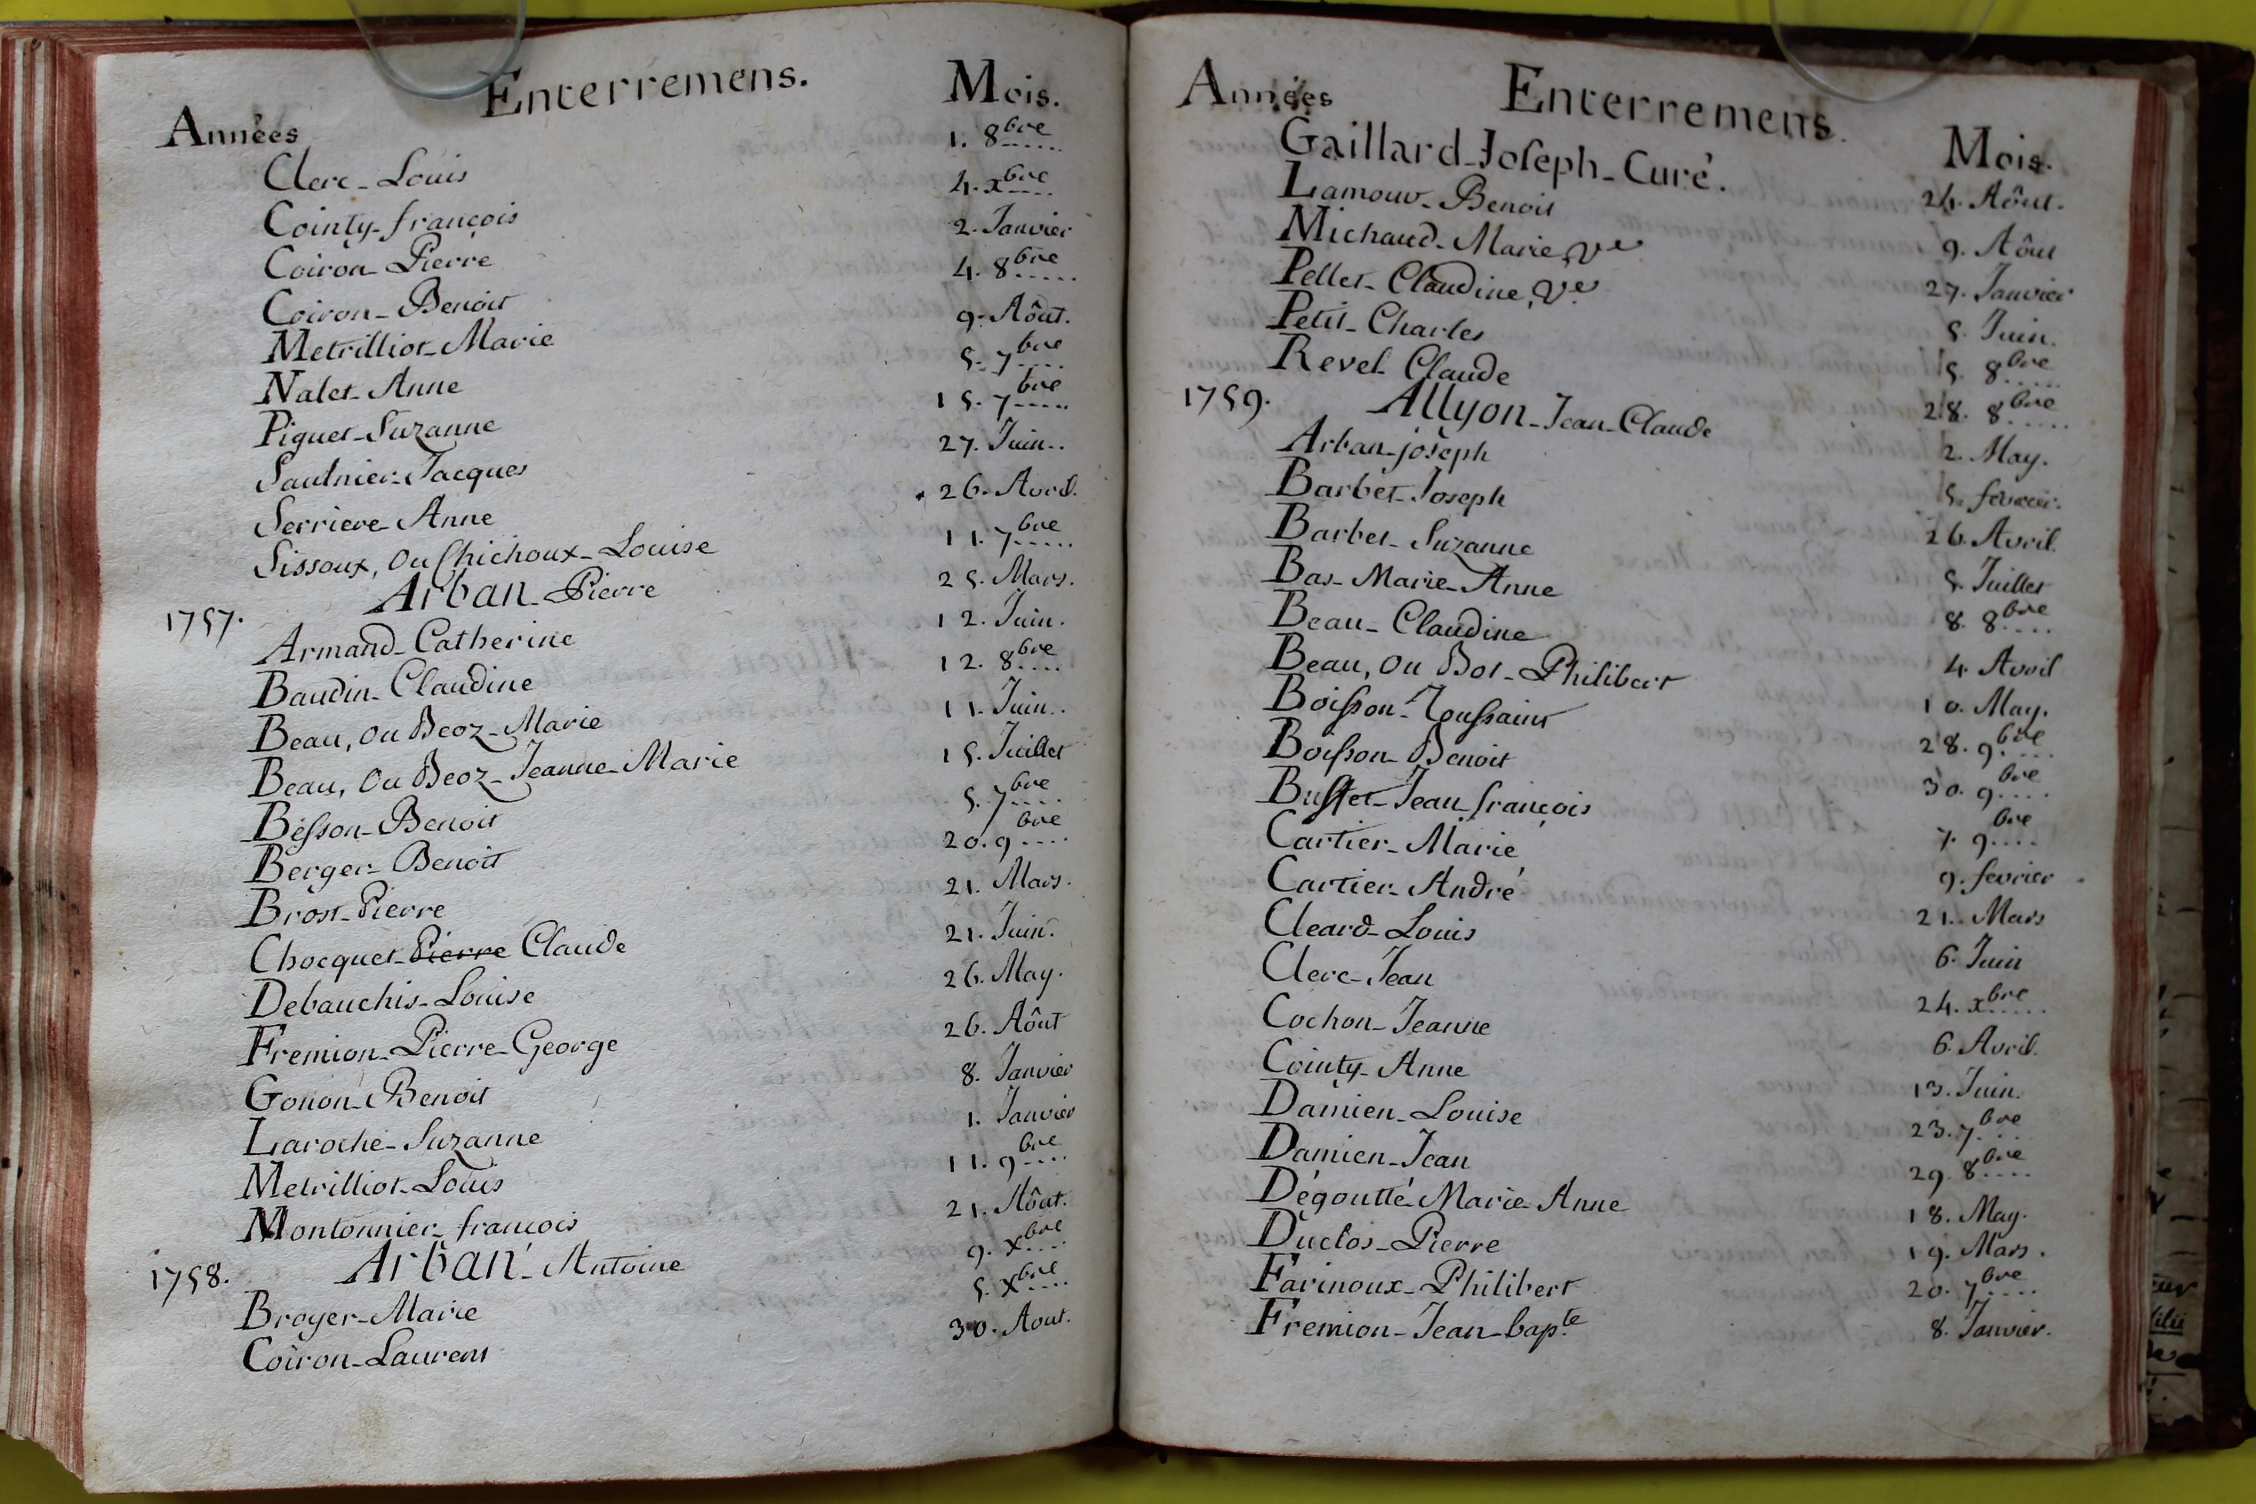 Années Enterremens. Mois.
Clerc - Louis 1. 8bre.....
Cointy - françois 4. xbre....
Coiron - Pierre 2. Janvier
Coiron - Benoit 4. 8bre.....
Metrilliot - Marie 9. Aôut.
Nalet - Anne 5. 7bre....
Piguet - Suzanne 15. 7bre.....
Saulnier - Jacques 27. Juin..
Serriere - Anne 26. Avril.
Sissoux, ou Chichoux - Louise 11. 7bre.....
1757. Arban - Pierre 25. Mars.
Armand - Catherine 12. Juin.
Baudin - Claudine 12. 8bre....
Beau, ou Beoz - Marie 11. Juin..
Beau, ou Beoz - Jeanne - Marie 15. Juillet
Besson - Benoit 5. 7bre....
Berger - Benoit 20. 9bre....
Brost - Pierre 21. Mars.
Chocquet - Pierre Claude 21. Juin.
Debauchis - Louise 26. May.
Fremion - Pierre - George 26. Aôut
Gonon - Benoit 8. Janvier
Laroche - Suzanne 1. Janvier
Metrilliot - Louis 11. 9bre....
Montonnier - françois 21. Aôut.
1758. Arban - Antoine 9. xbre....
Broyer - Marie 5. xbre....
Coiron - Laurent 30. Aout.
Années Enterremens. Mois.
Gaillard - Joseph - Curé. 24. Aôut.
Lamour - Benoit 9. Aôut
Michaud - Marie, Ve 27. Janvier
Pellet - Claudine, Ve. 5. Juin.
Petit - Charles 5. 8bre.....
Revel - Claude 28. 8bre.....
1759. Allyon - Jean - Claude 2. May.
Arban - joseph 5. fevrier.
Barbet - Joseph 26. Avril.
Barbet - Suzanne 5. Juillet
Bas - Marie - Anne 8. 8bre....
Beau - Claudine 4. Avril
Beau, ou Bot - Philibert 10. May.
Boisson - Toussaint 28. 9bre....
Boisson - Benoit 30. 9bre....
Buffet - Jean françois 7. 9bre....
Cartier - Marie 9. fevrier
Cartier - André 21. Mars
Cleard - Louis 6. Juin
Clerc - Jean 24. xbre.....
Cochon - Jeanne 6. Avril.
Cointy - Anne 13. Juin.
Damien - Louise 23. 7bre....
Damien - Jean 29. 8bre....
Dégoutté Marie - Anne 18. May.
Duclos - Pierre 19. Mars.
Farinoux - Philibert 20. 7bre....
Fremion - Jean - bapte. 8. Janvier.